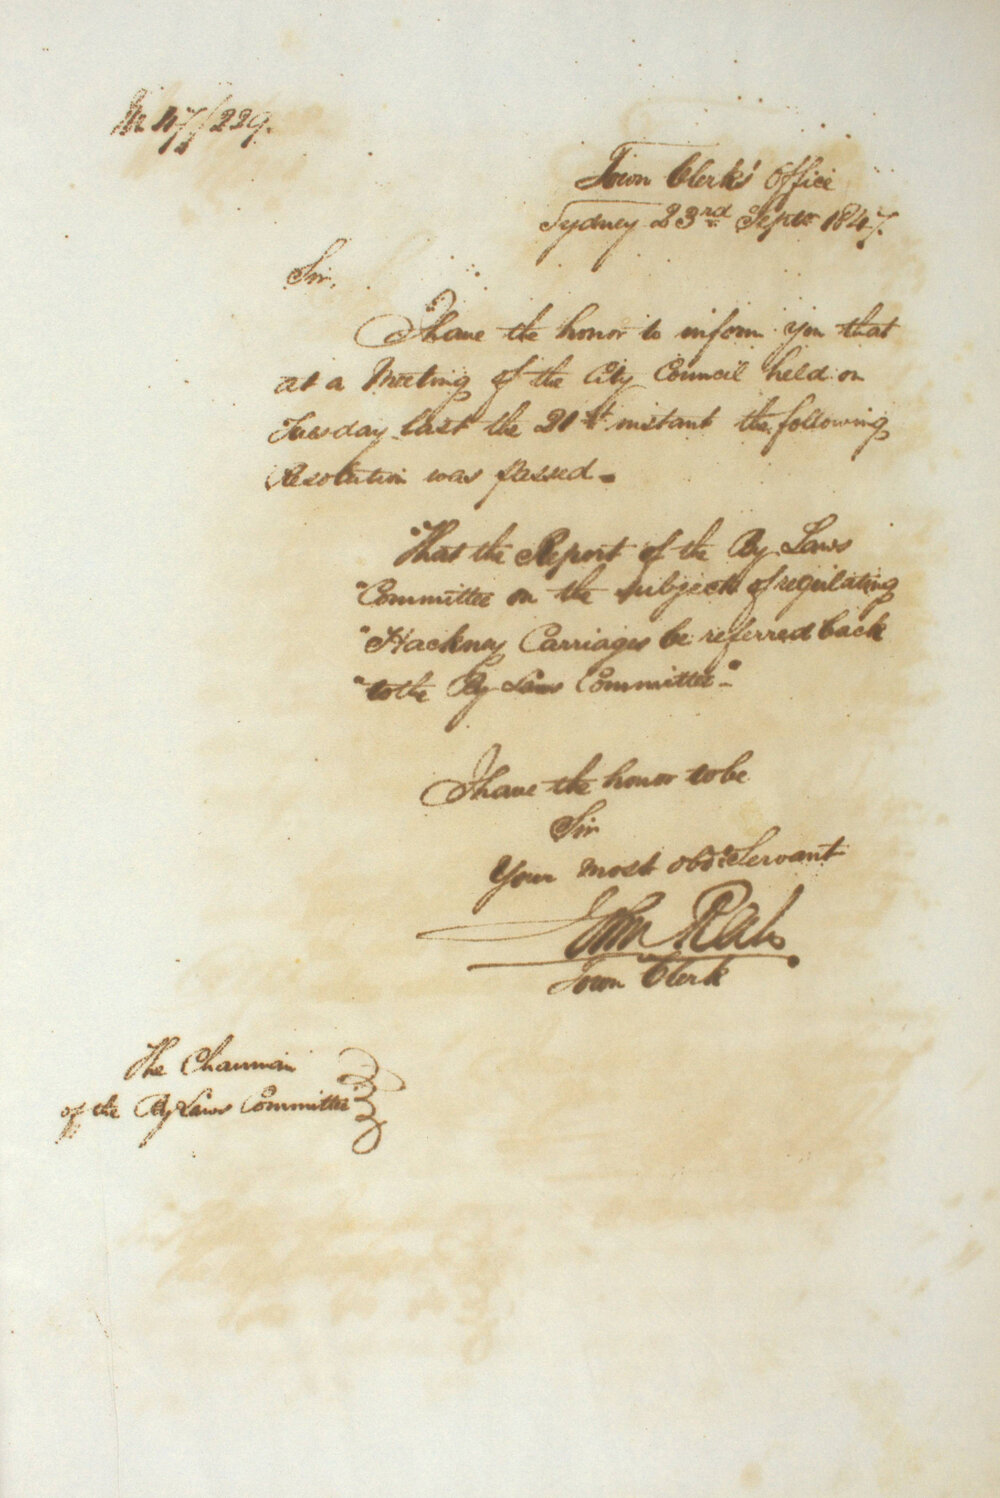 47/229.
Town Clerks' Office
Sydney 23rd Septr 1847.
Sir,
I have the honor to inform you that
at a Meeting of the City Council held on
Tuesday last the 21st instant the following
Resolution was passed.
"That the Report of the By Laws
"Committee on the subject of regulating
"Hackney Carriages be referred back
"to the By Laws Committee."
I have the honor to be
Sir
Your most obdt Servant
John Rae
Town Clerk
The Chairman
of the By Laws Committee